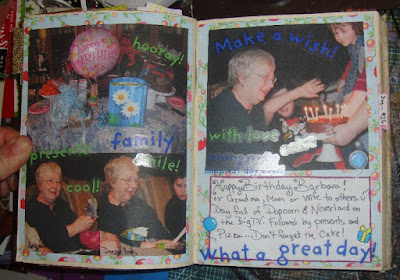 hooray!
family
presents
smile!
cool!
Make a wish!
with love
"Happy Birthday Barbara!"
or Grandma, Mom or Wife to others.
Day full of Popcorn & Neverland on
the Big TV. Followed by presents and
Pizza... Don't forget the Cake!
what a great day!